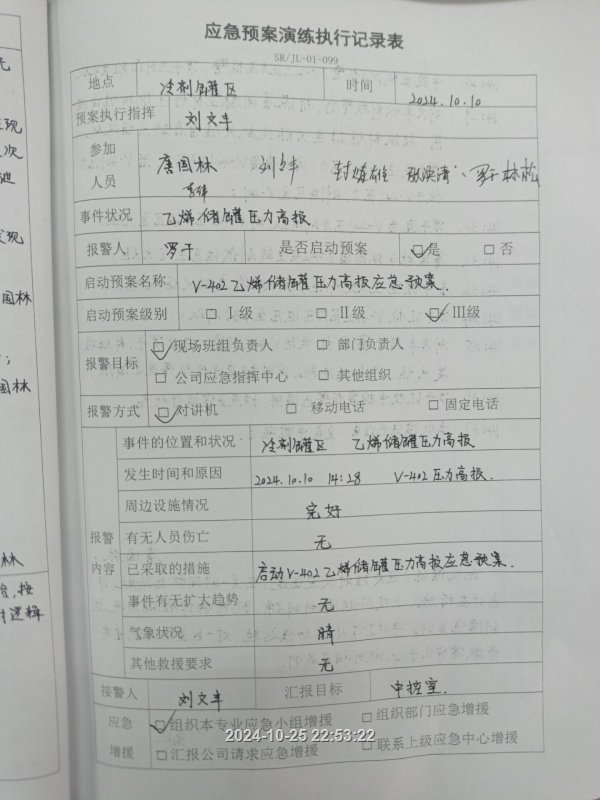 应急预案演练执行记录表
SR/JL-01-099
地点 冷剂罐区 时间 2024.10.10
预案执行指挥 刘文丰
参加人员 唐国林 封姝雄 罗干 林松
事件状况 乙烯储罐压力高报
报警人 罗干 是否启动预案 ☑是 □否
启动预案名称 V-402乙烯储罐压力高报应急预案.
启动预案级别 □I级 □II级 ☑III级
报警目标 ☑现场班组负责人 □部门负责人
□公司应急指挥中心 □其他组织
报警方式 ☑对讲机 □移动电话 □固定电话
报警内容
事件的位置和状况 冷剂罐区 乙烯储罐压力高报
发生时间和原因 2024.10.10 14:28 V-402压力高报.
周边设施情况 完好
有无人员伤亡 无
已采取的措施 启动V-402乙烯储罐压力高报应急预案.
事件有无扩大趋势 无
气象状况 晴
其他救援要求 无
接警人 刘文丰 汇报目标 中控室.
应急增援 ☑组织本专业应急小组增援 □组织部门应急增援
□汇报公司请求应急增援 □联系上级应急中心增援
2024-10-25 22:53:22
无
现
次
进
发现
国林
;
国林
林
,按
择